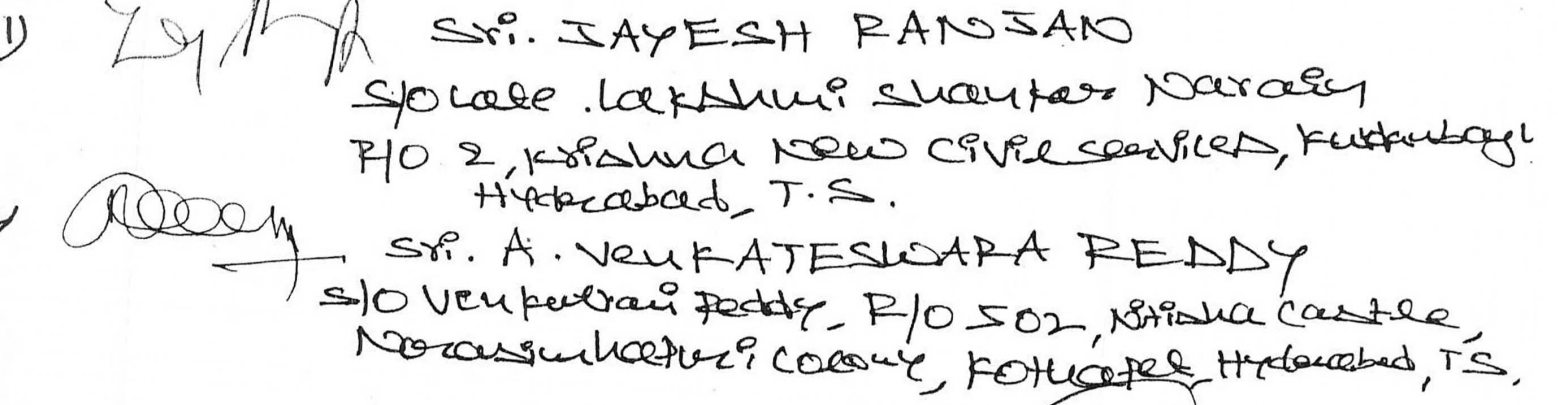 1) Sri. JAYESH RANJAN
S/o Late. Lakshmi Shankar Narain
R/O 2, Krishna New Civil Services, Kundanbagh
Hyderabad, T.S.
Sri. A. VenKATESWARA REDDY
S/O Venkatrami Reddy, R/O 502, Nitisha Castle,
Narasimhapuri Colony, Kothapet, Hyderabad, T.S.